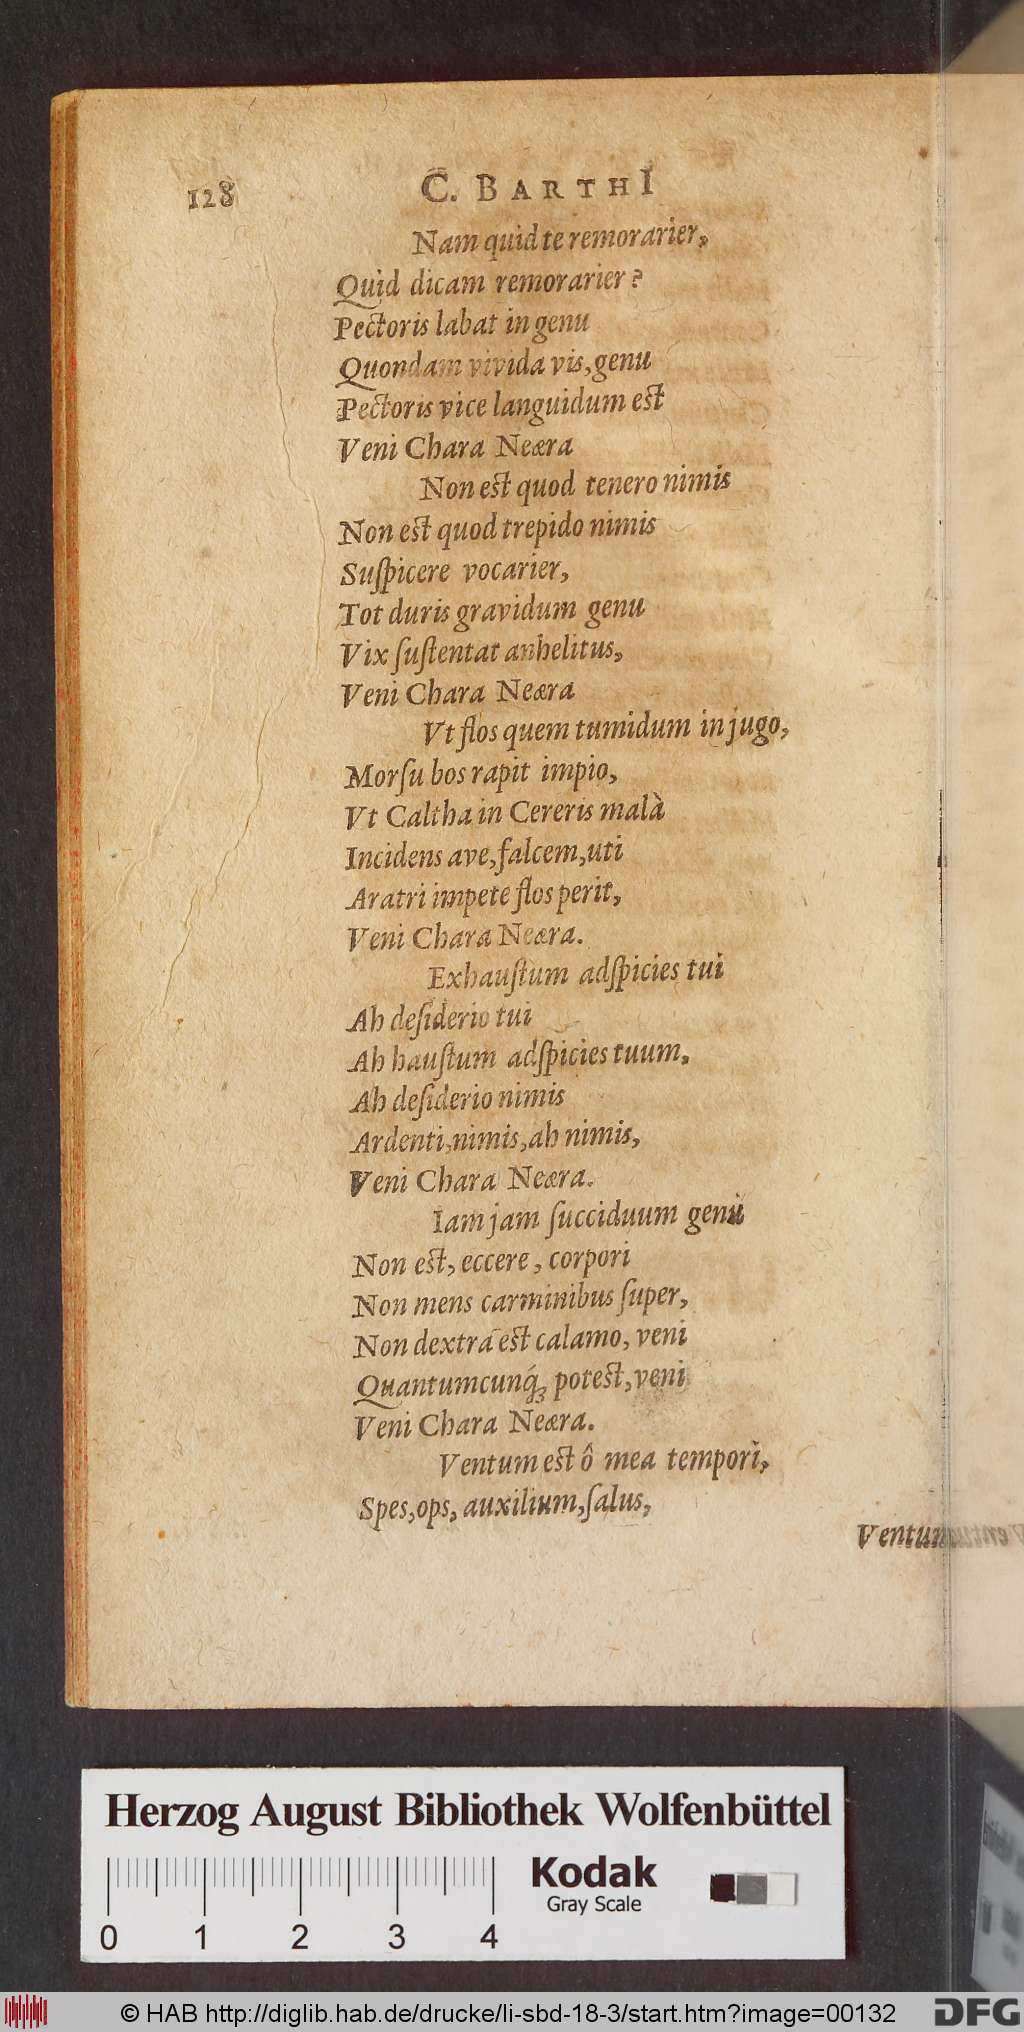 128 C. BARTHI
Nam quid te remorarier,
Quid dicam remorarier?
Pectoris labat in genu
Quondam vivida vis, genu
Pectoris vice languidum est
Veni Chara Neæra
Non est quod tenero nimis
Non est quod trepido nimis
Suſpicere vocarier,
Tot duris gravidum genu
Vix ſuſtentat anhelitus,
Veni Chara Neæra
Vt flos quem tumidum in jugo,
Morſu bos rapit impio,
Vt Caltha in Cereris malà
Incidens ave, falcem, uti
Aratri impete flos perit,
Veni Chara Neæra.
Exhauſtum adſpicies tui
Ah deſiderio tui
Ah hauſtum adſpicies tuum,
Ah deſiderio nimis
Ardenti, nimis, ah nimis,
Veni Chara Neæra.
Iam jam ſucciduum genu
Non est, eccere, corpori
Non mens carminibus ſuper,
Non dextra est calamo, veni
Quantumcunq́ꝫ potest, veni
Veni Chara Neæra.
Ventum est ô mea tempori,
Spes, ops, auxilium, ſalus,
Herzog August Bibliothek Wolfenbüttel
Kodak
Gray Scale
0 1 2 3 4
© HAB http://diglib.hab.de/drucke/li-sbd-18-3/start.htm?image=00132
DFG